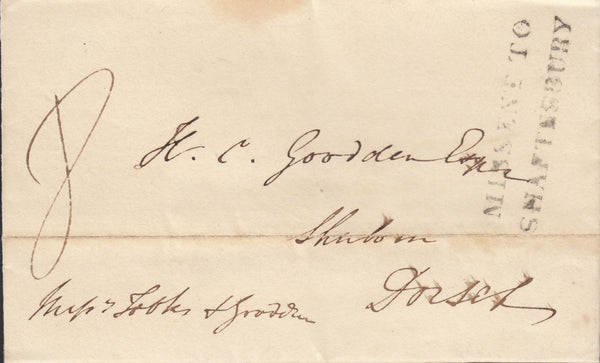 MISSENT TO
SHAFTESBURY
8
H. C. Goodden Esqre
Sherborn
Dorset
Messrs Tooks & Goodden